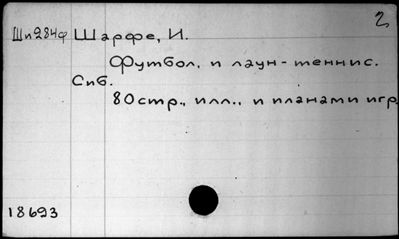 2
Шп284ф Шарфе, И.
Футбол, и лаун-теннис.
Спб.
80стр., илл., и планами игр.
18693